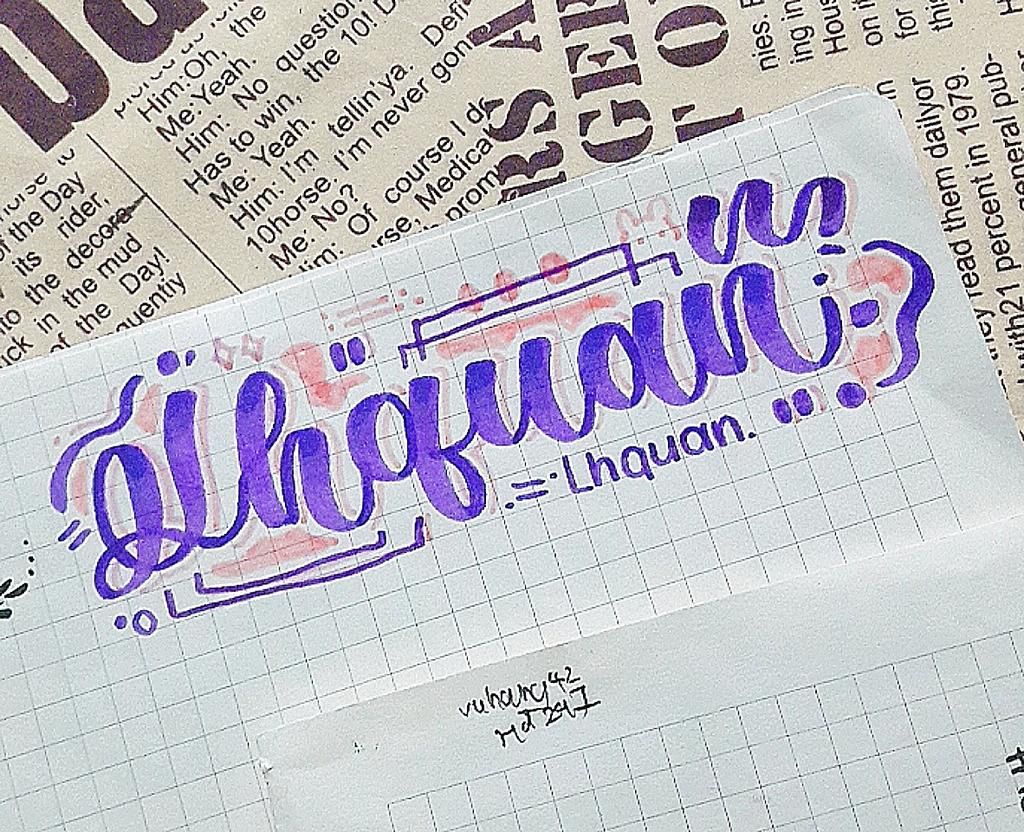 Him:Oh, the
Me:Yeah.
Him: No question
Has to win,
Me: Yeah.
the 10! D
Him: I'm tellin'ya. Defi
10horse. I'm never gon
Me: No?
Him: Of course I d
rse, Medical
prom
of the Day
its rider,
to the decore
in the mud
of the Day!
quently
RS A
GEE
T O
nies. E
ing in
Hous
on it
for
this
read them dailyor
with21 percent in 1979.
Lhquan
Lhquan.